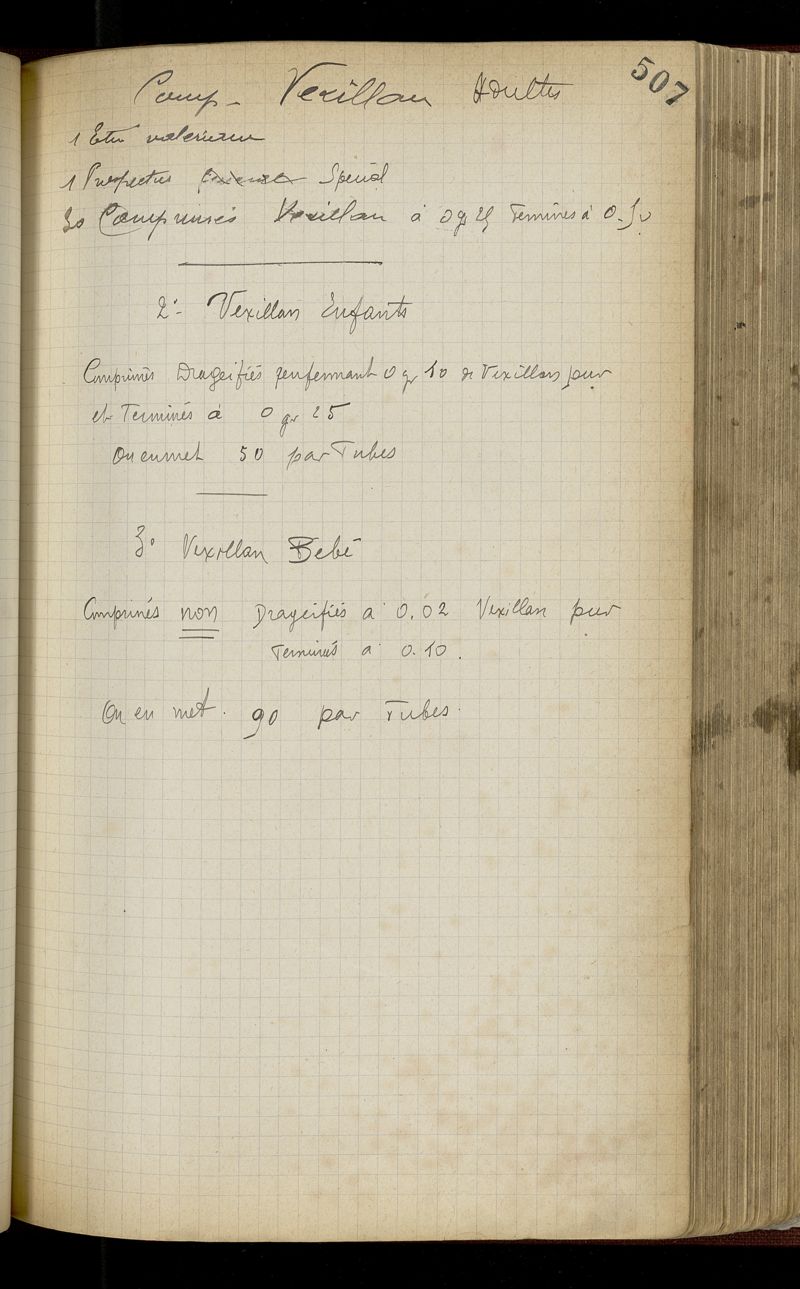 507
Comp- Vexillan Adultes
1 Etui
1 Prospectus Special
30 Comprimés Vexillan à 0 gr 25 Terminés à 0.50
2°- Vexillan Enfants
Comprimés Drageifiés renfermant 0 gr 10 de Vexillan pur
et Terminés à 0 gr 25
On en met 50 par Tubes
3° Vexillan Bebé
Comprimés non Drageifiés a 0.02 Vexillan pur
Terminés a 0.10.
On en met. 90 par Tubes.